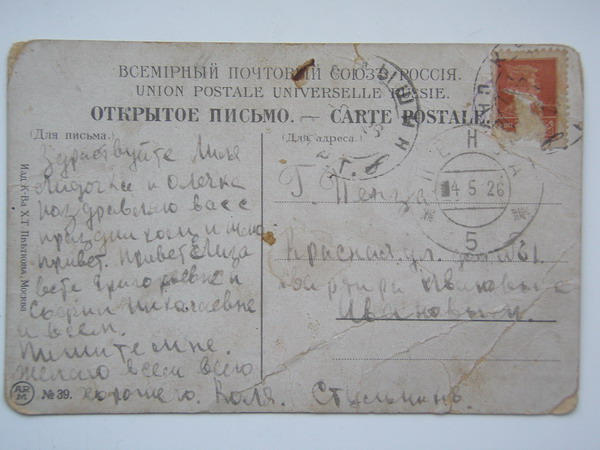 ВСЕМІРНЫЙ ПОЧТОВЫЙ СОЮЗЪ РОССІЯ.
UNION POSTALE UNIVERSELLE RUSSIE.
ОТКРЫТОЕ ПИСЬМО. — CARTE POSTALE.
(Для письма.)
Здравствуйте Миля
Лидочка и Олечка
поздравляю вас с
праздником и шлю
привет. Привет Елиза
вете Григорьевне и
Софии Николаевне
и всем.
Пишите мне.
Желаю всем всего
хорошего. Коля.
(Для адреса.)
Г. Пенза
Красная ул.
Ивановым.
14 5 26
5
Изд. К-ва Х.Т. Москва
№ 39.